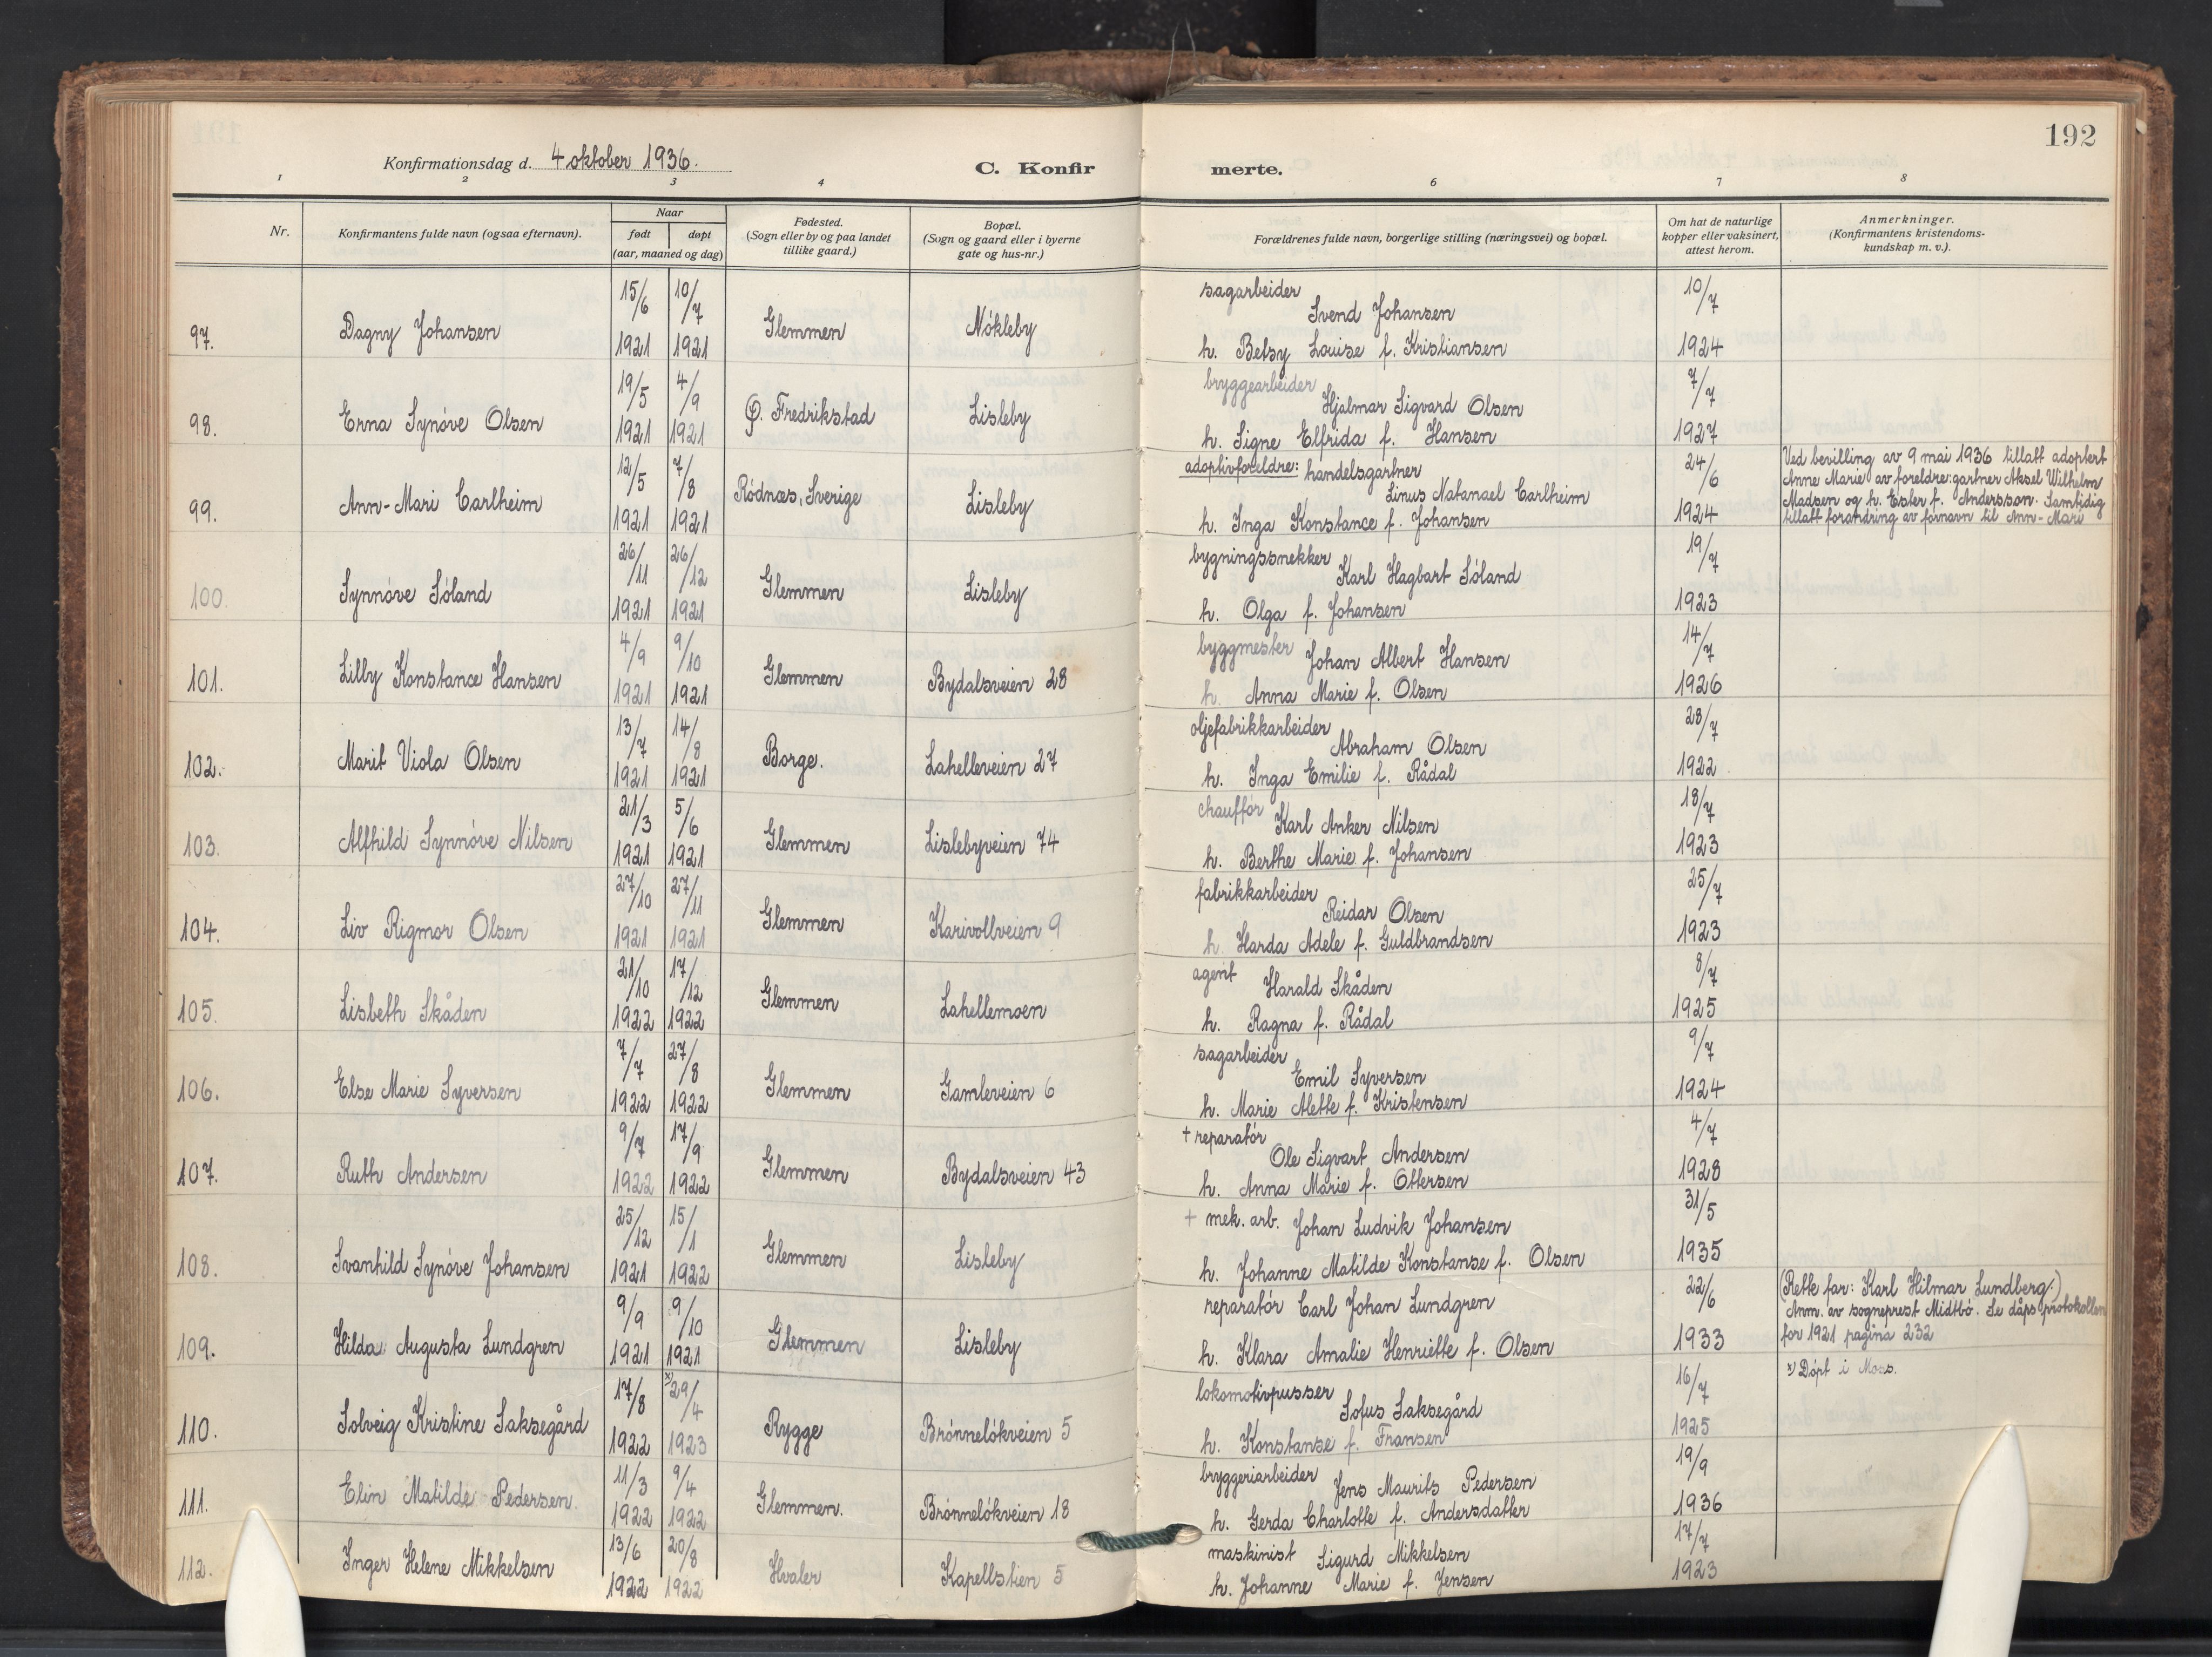 192
Konfirmationsdag d. 4 oktober 1936.
C. Konfir merte.
1 2 3 4 6 7 8
Nr.
Konfirmantens fulde navn (ogsaa efternavn).
Naar
født døpt
(aar, maaned og dag)
Fødested.
(Sogn eller by og paa landet
tillike gaard.)
Bopæl.
(Sogn og gaard eller i byerne
gate og hus-nr.)
Forældrenes fulde navn, borgerlige stilling (næringsvei) og bopæl.
Om hat de naturlige
kopper eller vaksinert,
attest herom.
Anmerkninger.
(Konfirmantens kristendoms-
kundskap m. v.).
15/6 10/7 sagarbeider 10/7
97. Dagny Johansen Glemmen Nökleby Svend Johansen
1921 1921 h. Betsy Louise f. Kristiansen 1924
19/5 4/9 bryggearbeider 7/7
98. Erna Synöve Olsen Ø. Fredrikstad Lisleby Hjalmar Sigvard Olsen
1921 1921 h. Signe Elfrida f. Hansen 1927
12/5 7/8 adoptivforeldre: handelsgartner 24/6
99. Ann-Mari Carlheim Rödnæs, Sverige Lisleby Linus Natanael Carlheim
1921 1921 h. Inga Konstance f. Johansen 1924
Ved bevilling av 9 mai 1936 tillatt adoptert
Anne Marie av foreldre: gartner Aksel Wilhelm
Madsen og h. Ester f. Andersson. Samtidig
tillatt forandring av fornavn til Ann-Mari
26/11 26/12 bygningssnekker 19/7
100. Synnöve Söland Glemmen Lisleby Karl Hagbart Söland
1921 1921 h. Olga f. Johansen 1923
4/9 9/10 byggmester 14/7
101. Lilly Konstance Hansen Glemmen Bydalsveien 28 Johan Albert Hansen
1921 1921 h. Anna Marie f. Olsen 1926
13/7 14/8 oljefabrikkarbeider 28/7
102. Marit Viola Olsen Borge. Lahelleveien 27 Abraham Olsen
1921 1921 h. Inga Emilie f. Rådal 1922
21/3 5/6 chaufför 18/7
103. Alfhild Synnöve Nilsen Glemmen Lislebyveien 74 Karl Anker Nilsen
1921 1921 h. Berthe Marie f. Johansen 1923
27/10 27/11 fabrikkarbeider 25/7
104. Liv Rigmor Olsen Glemmen Karivollveien 9 Reidar Olsen
1921 1921 h. Harda Adele f. Guldbrandsen 1923
21/10 17/12 agent 8/7
105. Lisbeth Skåden Glemmen Lahellemoen Harald Skåden
1922 1922 h. Ragna f. Rådal 1925
7/7 27/8 sagarbeider 9/7
106. Else Marie Syversen Glemmen Gamleveien 6 Emil Syversen
1922 1922 h. Marie Alette f. Kristensen 1924
9/7 17/9 + reparatör 4/7
107. Ruth Andersen Glemmen Bydalsveien 43 Ole Sigvart Andersen
1922 1922 h. Anna Marie f. Ottersen 1928
25/12 15/1 + mek. arb. Johan Ludvik Johansen 31/5
108. Svanhild Synöve Johansen Glemmen Lisleby
1921 1922 h. Johanne Matilde Konstanse f. Olsen 1935
9/9 9/10 reparatör Carl Johan Lundgren 22/6
109. Hilda Augusta Lundgren Glemmen Lisleby
1921 1921 h. Klara Amalie Henriette f. Olsen 1933
(Rette far: Karl Hilmar Lundberg.)
Anm. av sogneprest Midtbö. Se dåpsprotokollen
for 1921 pagina 232
17/8 x) 29/4 lokomotivpusser 16/7 x) Döpt i Moss.
110. Solveig Kristine Saksegård Rygge Brönnelökveien 5 Sofus Saksegård
1922 1923 h. Konstanse f. Fransen 1925
11/3 9/4 bryggeriarbeider 19/9
111. Elin Matilde Pedersen. Glemmen. Brönnelökveien 18 Jens Maurits Pedersen
1922 1922 h. Gerda Charlotte f. Andersdatter 1936
13/6 20/8 maskinist Sigurd Mikkelsen 17/7
112. Inger Helene Mikkelsen Hvaler Kapellstien 5
1922 1922 h. Johanne Marie f. Jensen 1923